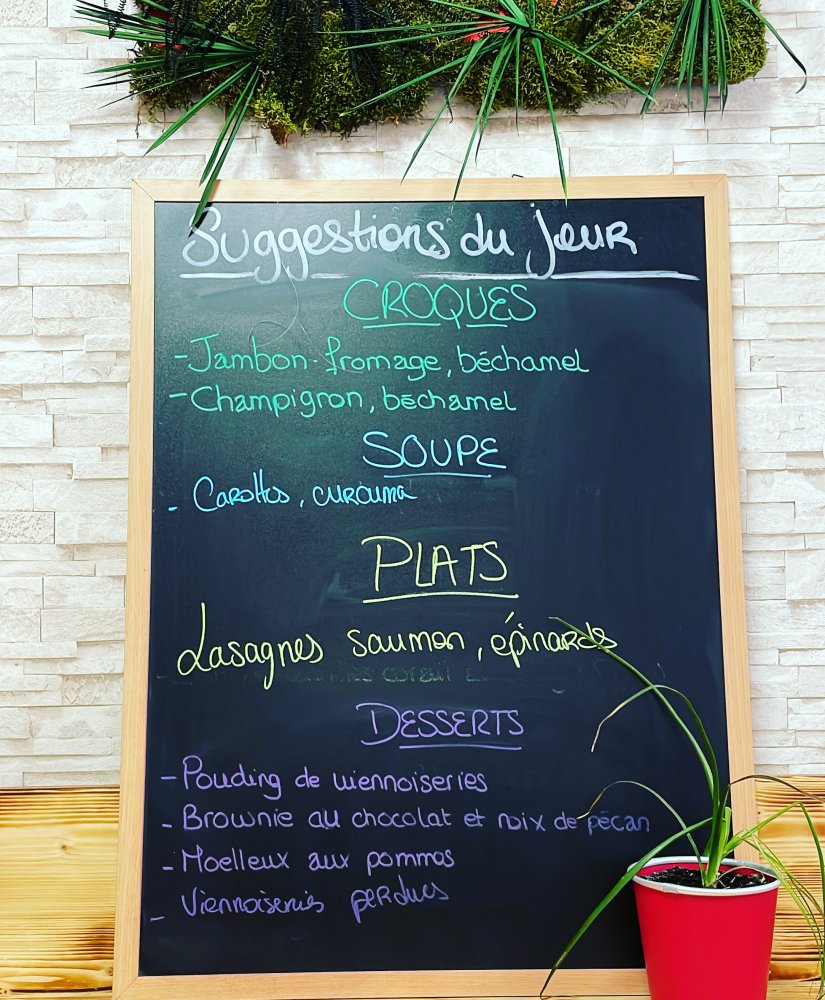 Suggestions du jour
CROQUES
- Jambon-fromage, béchamel
- Champignon, béchamel
SOUPE
- Carottes, curcuma
PLATS
Lasagnes saumon, épinards
DESSERTS
- Pouding de viennoiseries
- Brownie au chocolat et noix de pécan
- Moelleux aux pommes
- Viennoiseries perdues